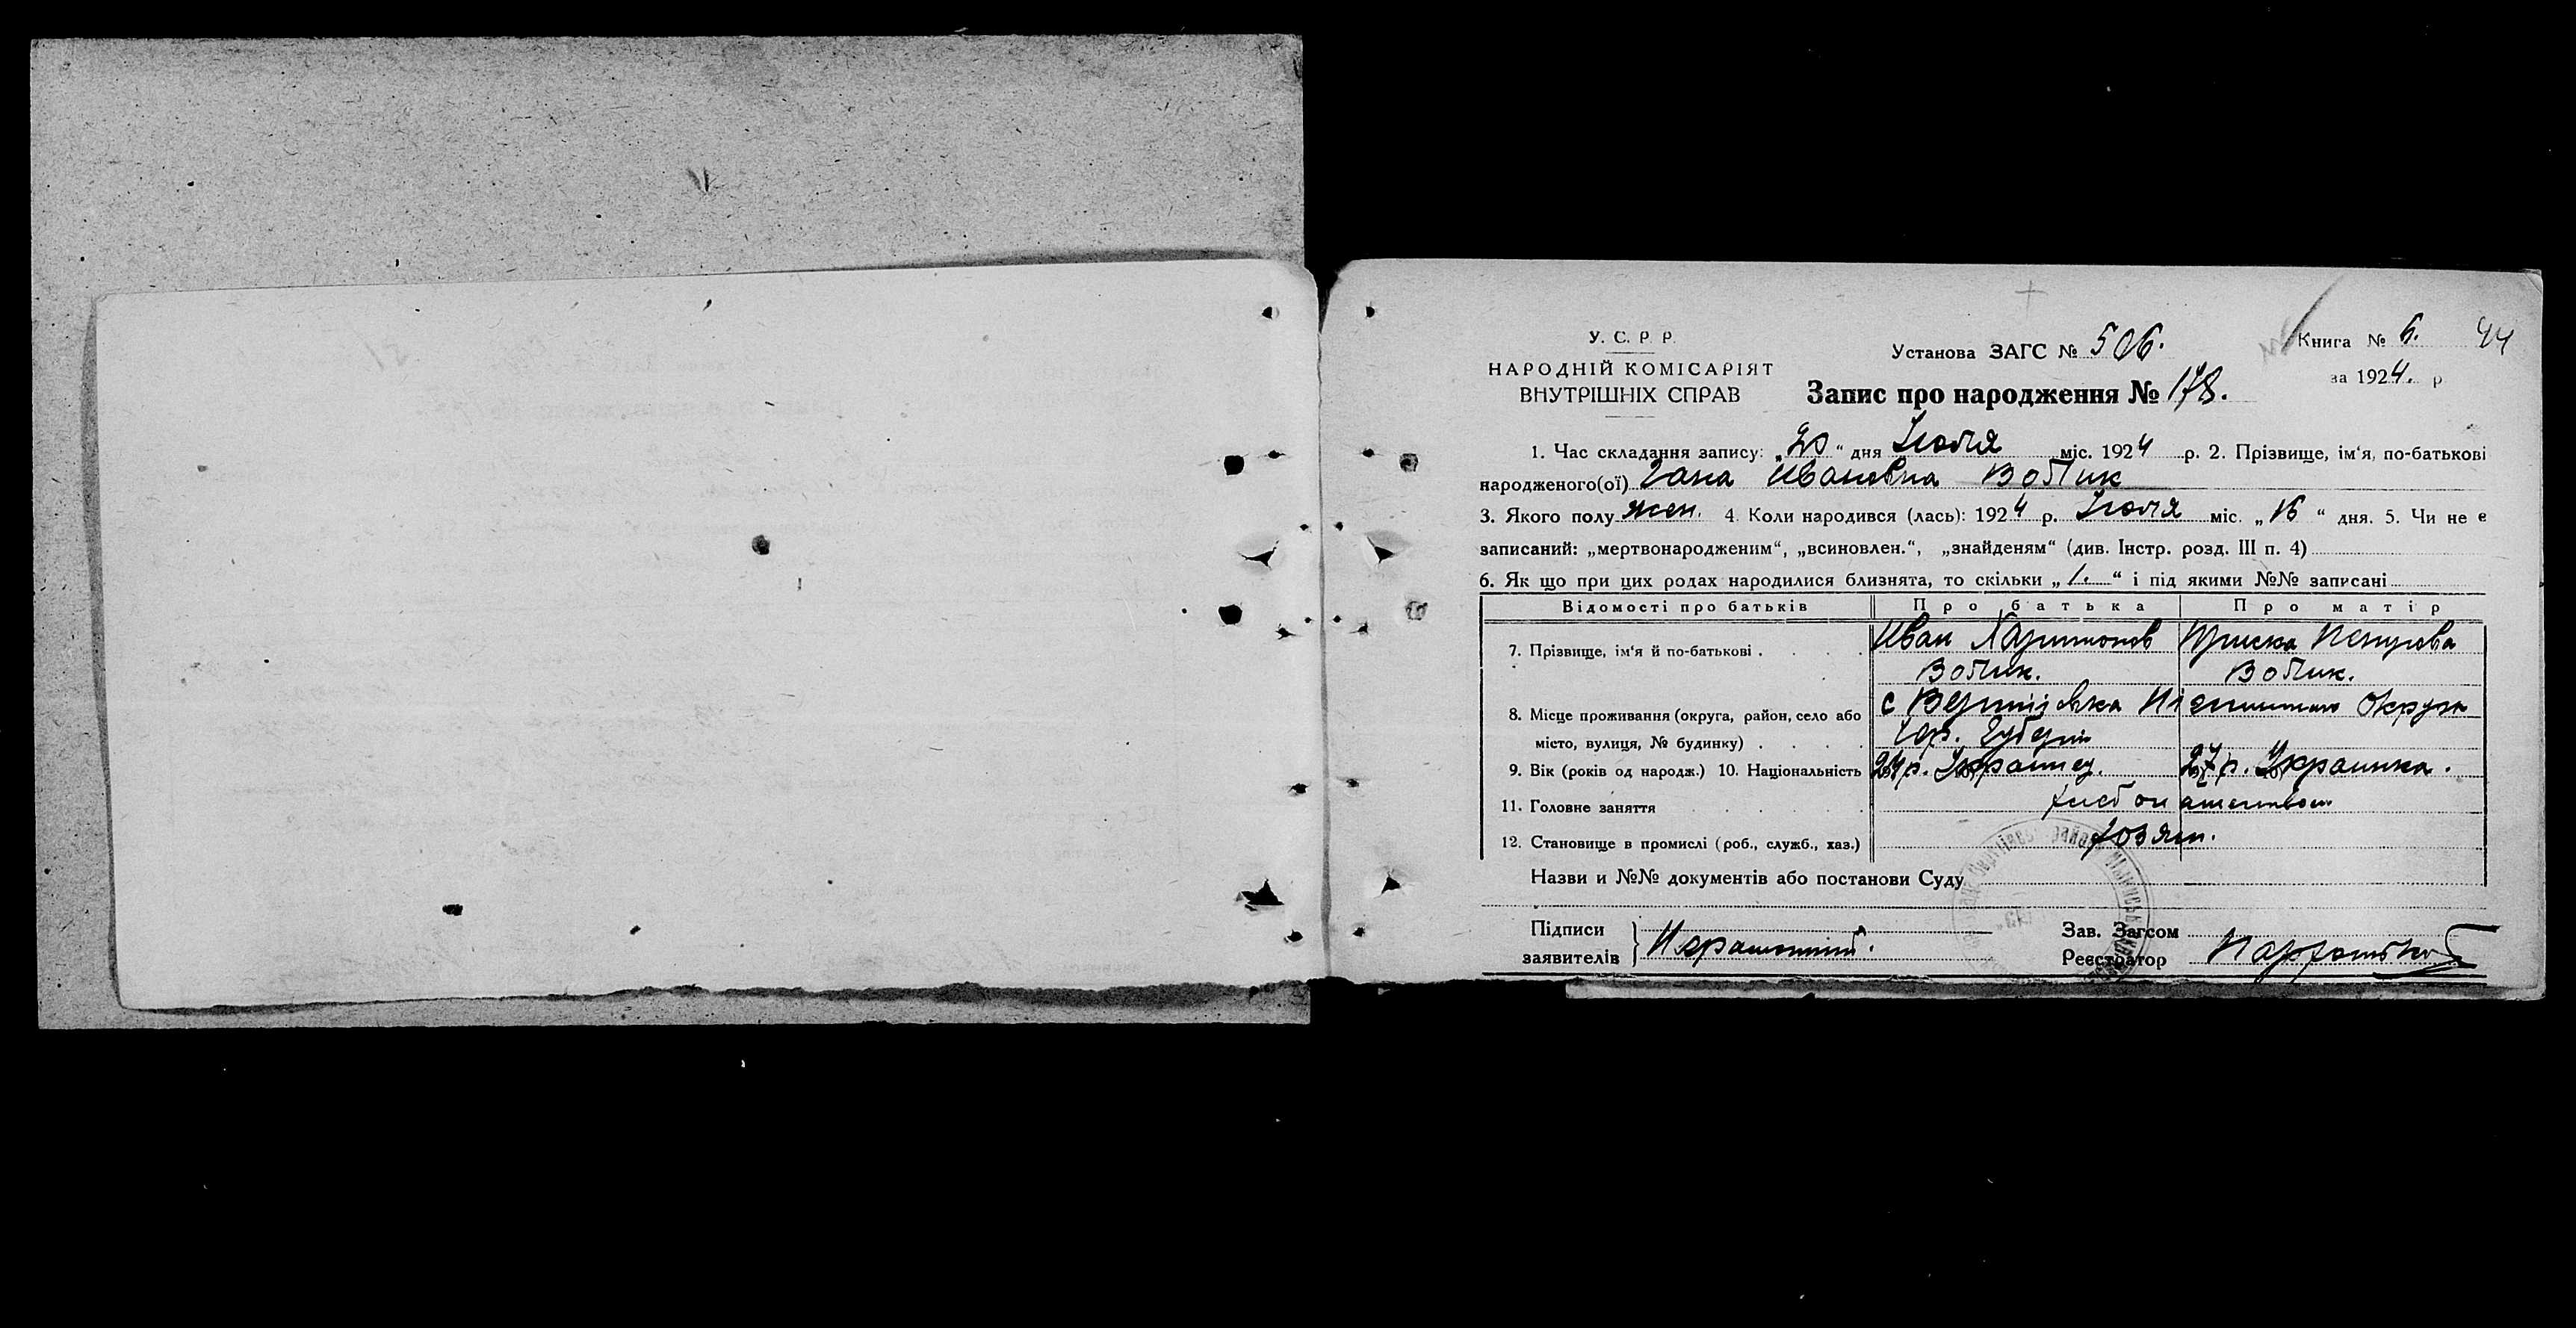 У. С. Р. Р.
НАРОДНІЙ КОМІСАРІЯТ
ВНУТРІШНІХ СПРАВ
Установа ЗАГС № 506.
Книга № 6. 44
за 1924. р
Запис про народження № 178.
1. Час складання запису: „20“ дня Июля міс. 1924 р. 2. Прізвище, ім‘я, по-батькові
народженого(ої) Гана Ивановна Вовик
3. Якого полу жен. 4. Коли народився (лась): 1924 р. Июля міс. „16“ дня. 5. Чи не є
записаний: „мертвонародженим“, „всиновлен.“, „знайденям“ (див. Інстр. розд. III п. 4)
6. Як що при цих родах народилися близнята, то скільки „1.“ і під якими №№ записані
Відомості про батьків Про батька Про матір
7. Прізвище, ім‘я й по-батькові . . . . Иван Харитонов
Вовик. Вовик.
8. Місце проживання (округа, район, село або с Вертіївка Округи
місто, вулиця, № будинку) . . . . Губерни
9. Вік (років од народж.) 10. Національність 24 р. Украинец. 27 р. Украинка.
11. Головне заняття . . . . хлебопашеством
12. Становище в промислі (роб., служб., хаз.) хозяин.
Назви и №№ документів або постанови Суду
Підписи
заявителів
Зав. Загсом
Реєстратор